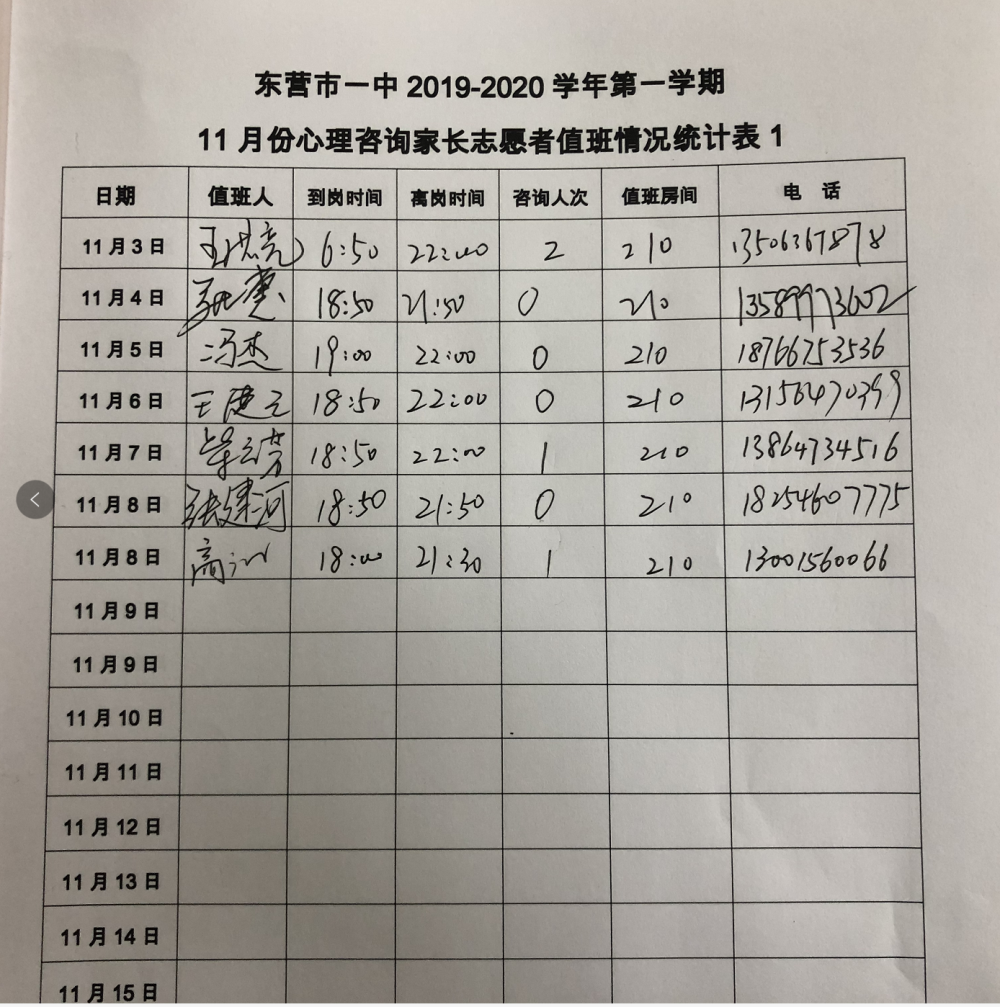 东营市一中 2019-2020 学年第一学期
11 月份心理咨询家长志愿者值班情况统计表 1
日期 值班人 到岗时间 离岗时间 咨询人次 值班房间 电 话
11 月 3 日 6:50 22:00 2 210 13506367878
11 月 4 日 18:50 21:50 0 210 13589973602
11 月 5 日 冯杰 19:00 22:00 0 210 18766753536
11 月 6 日 18:50 22:00 0 210 13156470399
11 月 7 日 18:50 22:00 1 210 13864734516
11 月 8 日 张建河 18:50 21:50 0 210 18254607775
11 月 8 日 18:00 21:30 1 210 13001560066
11 月 9 日
11 月 9 日
11 月 10 日
11 月 11 日
11 月 12 日
11 月 13 日
11 月 14 日
11 月 15 日